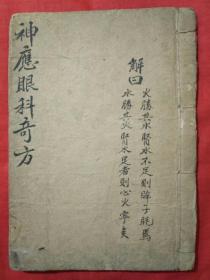 神應眼科奇方
解曰
火勝其水腎水不足則眸子眊焉
水勝其火腎水足者則心火寧矣